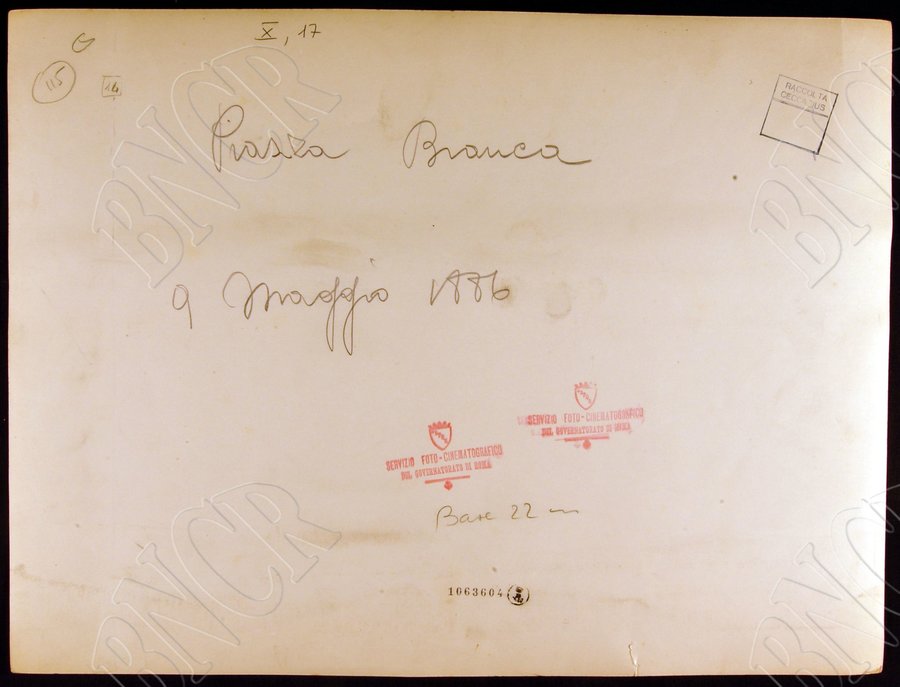 X, 17
G
115
14
RACCOLTA
CECCARIUS
Piazza Branca
9 Maggio 1886
SERVIZIO FOTO-CINEMATOGRAFICO
DEL GOVERNATORATO DI ROMA
SERVIZIO FOTO-CINEMATOGRAFICO
DEL GOVERNATORATO DI ROMA
Base 22
1063604
BNCR
BNCR
BNCR
BNCR